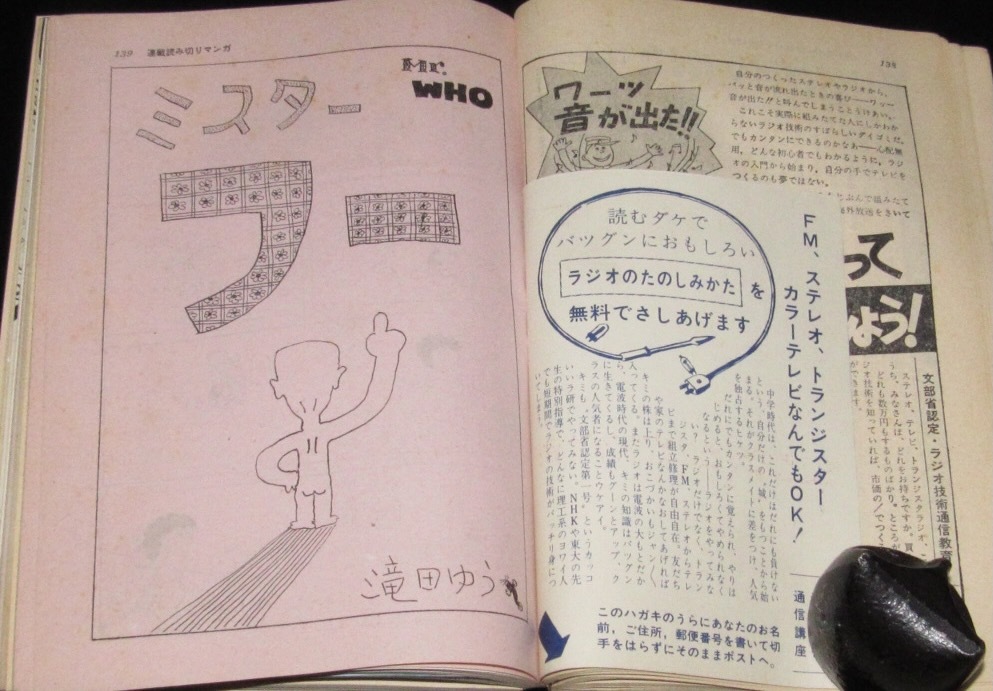 139 連載読み切りマンガ
Mr.
WHO
ミスター
フー
滝田ゆう
138
ワーッ
音が出た!!
自分のつくったステレオやラジオから、
パッと音が流れ出たときの喜び——ワッー
音が出た!!と叫んでしまうことうけあい。
これこそ実際に組みたてた人にしかわか
らないラジオ技術のすばらしいダイゴミだ。
でもカンタンにできるのかなあ——心配無
用、どんな初心者でもわかるように、ラジ
オの入門から始まり、自分の手でテレビを
つくるのも夢ではない。
ぶんで組みたて
海外放送をきいて
って
しょう!
文部省認定・ラジオ技術通信教育
ステレオ、テレビ、トランジスタラジオ、こ
うち、みなさんは、どれをお持ちですか。買
どれも数万円もするものばかり。ところが
ジオ技術を知っていれば、市価の
ができます。
FM、ステレオ、トランジスター
カラーテレビなんでもOK!
通信講座
読むダケで
バツグンにおもしろい
ラジオのたのしみかた を
無料でさしあげます
中学時代は、これだけはだれにも負けない
という、自分だけの〝城〟をもつことから始
まる。それがクラスメイトに差をつけ、人気
を独占するヒケツ。
だれにでもカンタンに覚えられ、やりは
じめると、おもしろくてやめられなく
なるという——ラジオをやってみな
い? ラジオだけでなく、トラン
ジスタ、FM、ステレオからテレ
ビまで組立修理が自由自在。友だち
や家のテレビなんかなおしてあげれば
キミの株は上り、おこづかいもジャン〱
入ってくる。またラジオは電波の大もとだか
ら、電波時代の現代、キミの知識はバツグン
に生きてくるし、成績もグーンとアップ、ク
ラスの人気者になることウケアイ。
キミも、〝文部省認定第一号〟というカッコ
いいラ研でやってみない。NHKや東大の先
生の特別指導で、どんなに理工系のヨワイ人
でも短期間でラジオの技術がバッチリ身につ
いてします。
このハガキのうらにあなたのお名
前、ご住所、郵便番号を書いて切
手をはらずにそのままポストへ。